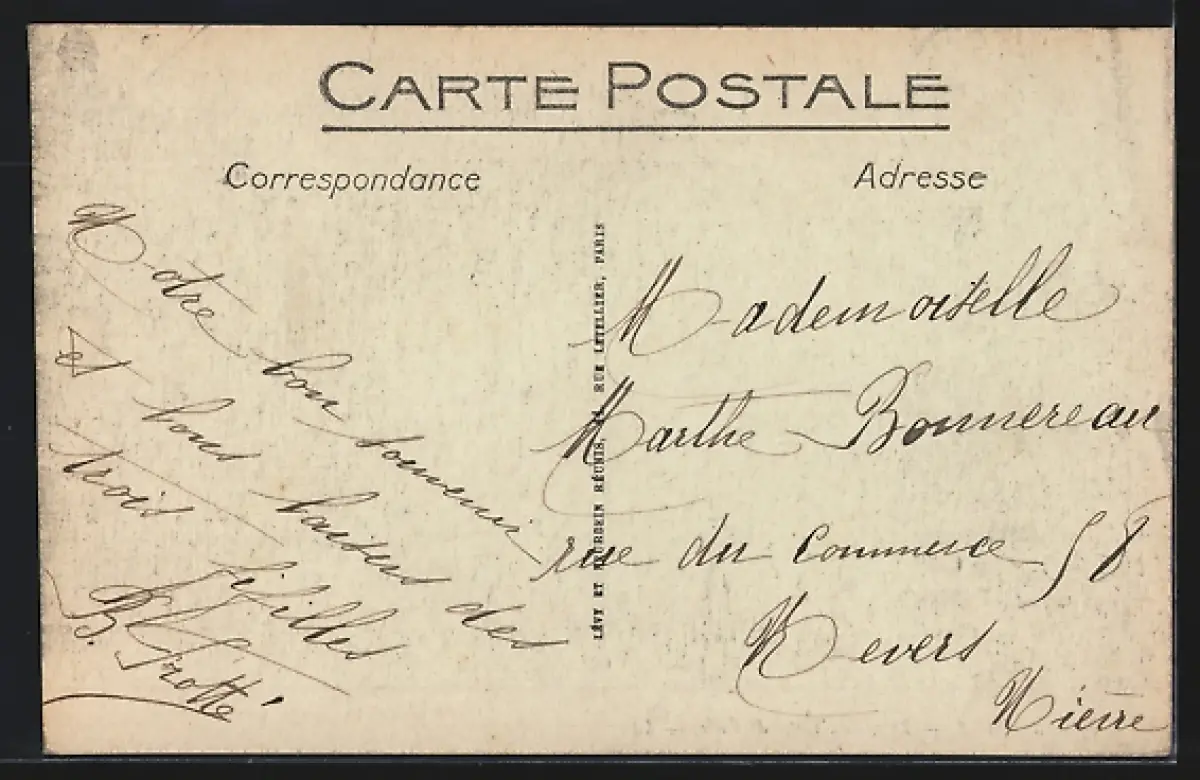 CARTE POSTALE
Correspondance
Adresse
Notre bon souvenir
et bons baisers des
trois fifilles
B. Trotté
LÉVY ET NEURDEIN RÉUNIS, RUE LETELLIER, PARIS
Mademoiselle
Marthe Bonnereau
rue du Commerce 58
Nevers
Nièvre